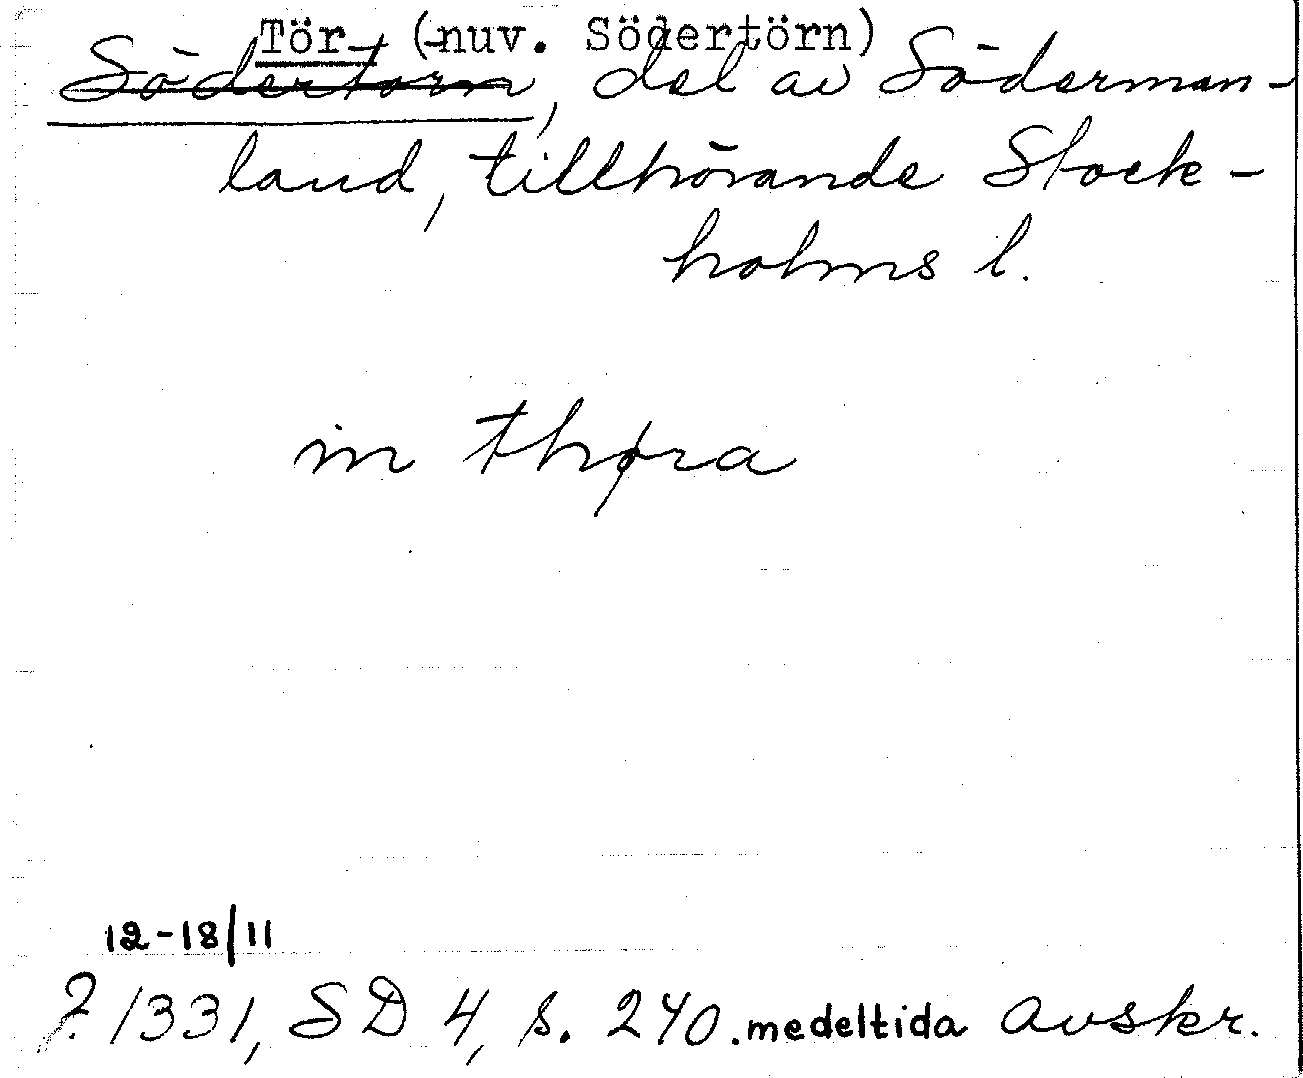 Tör (-nuv. Södertörn)
Södertörn, del av Söderman-
land, tillhörande Stock-
holms l.
in thøra
12-18/11
? 1331, SD 4, s. 240. medeltida avskr.